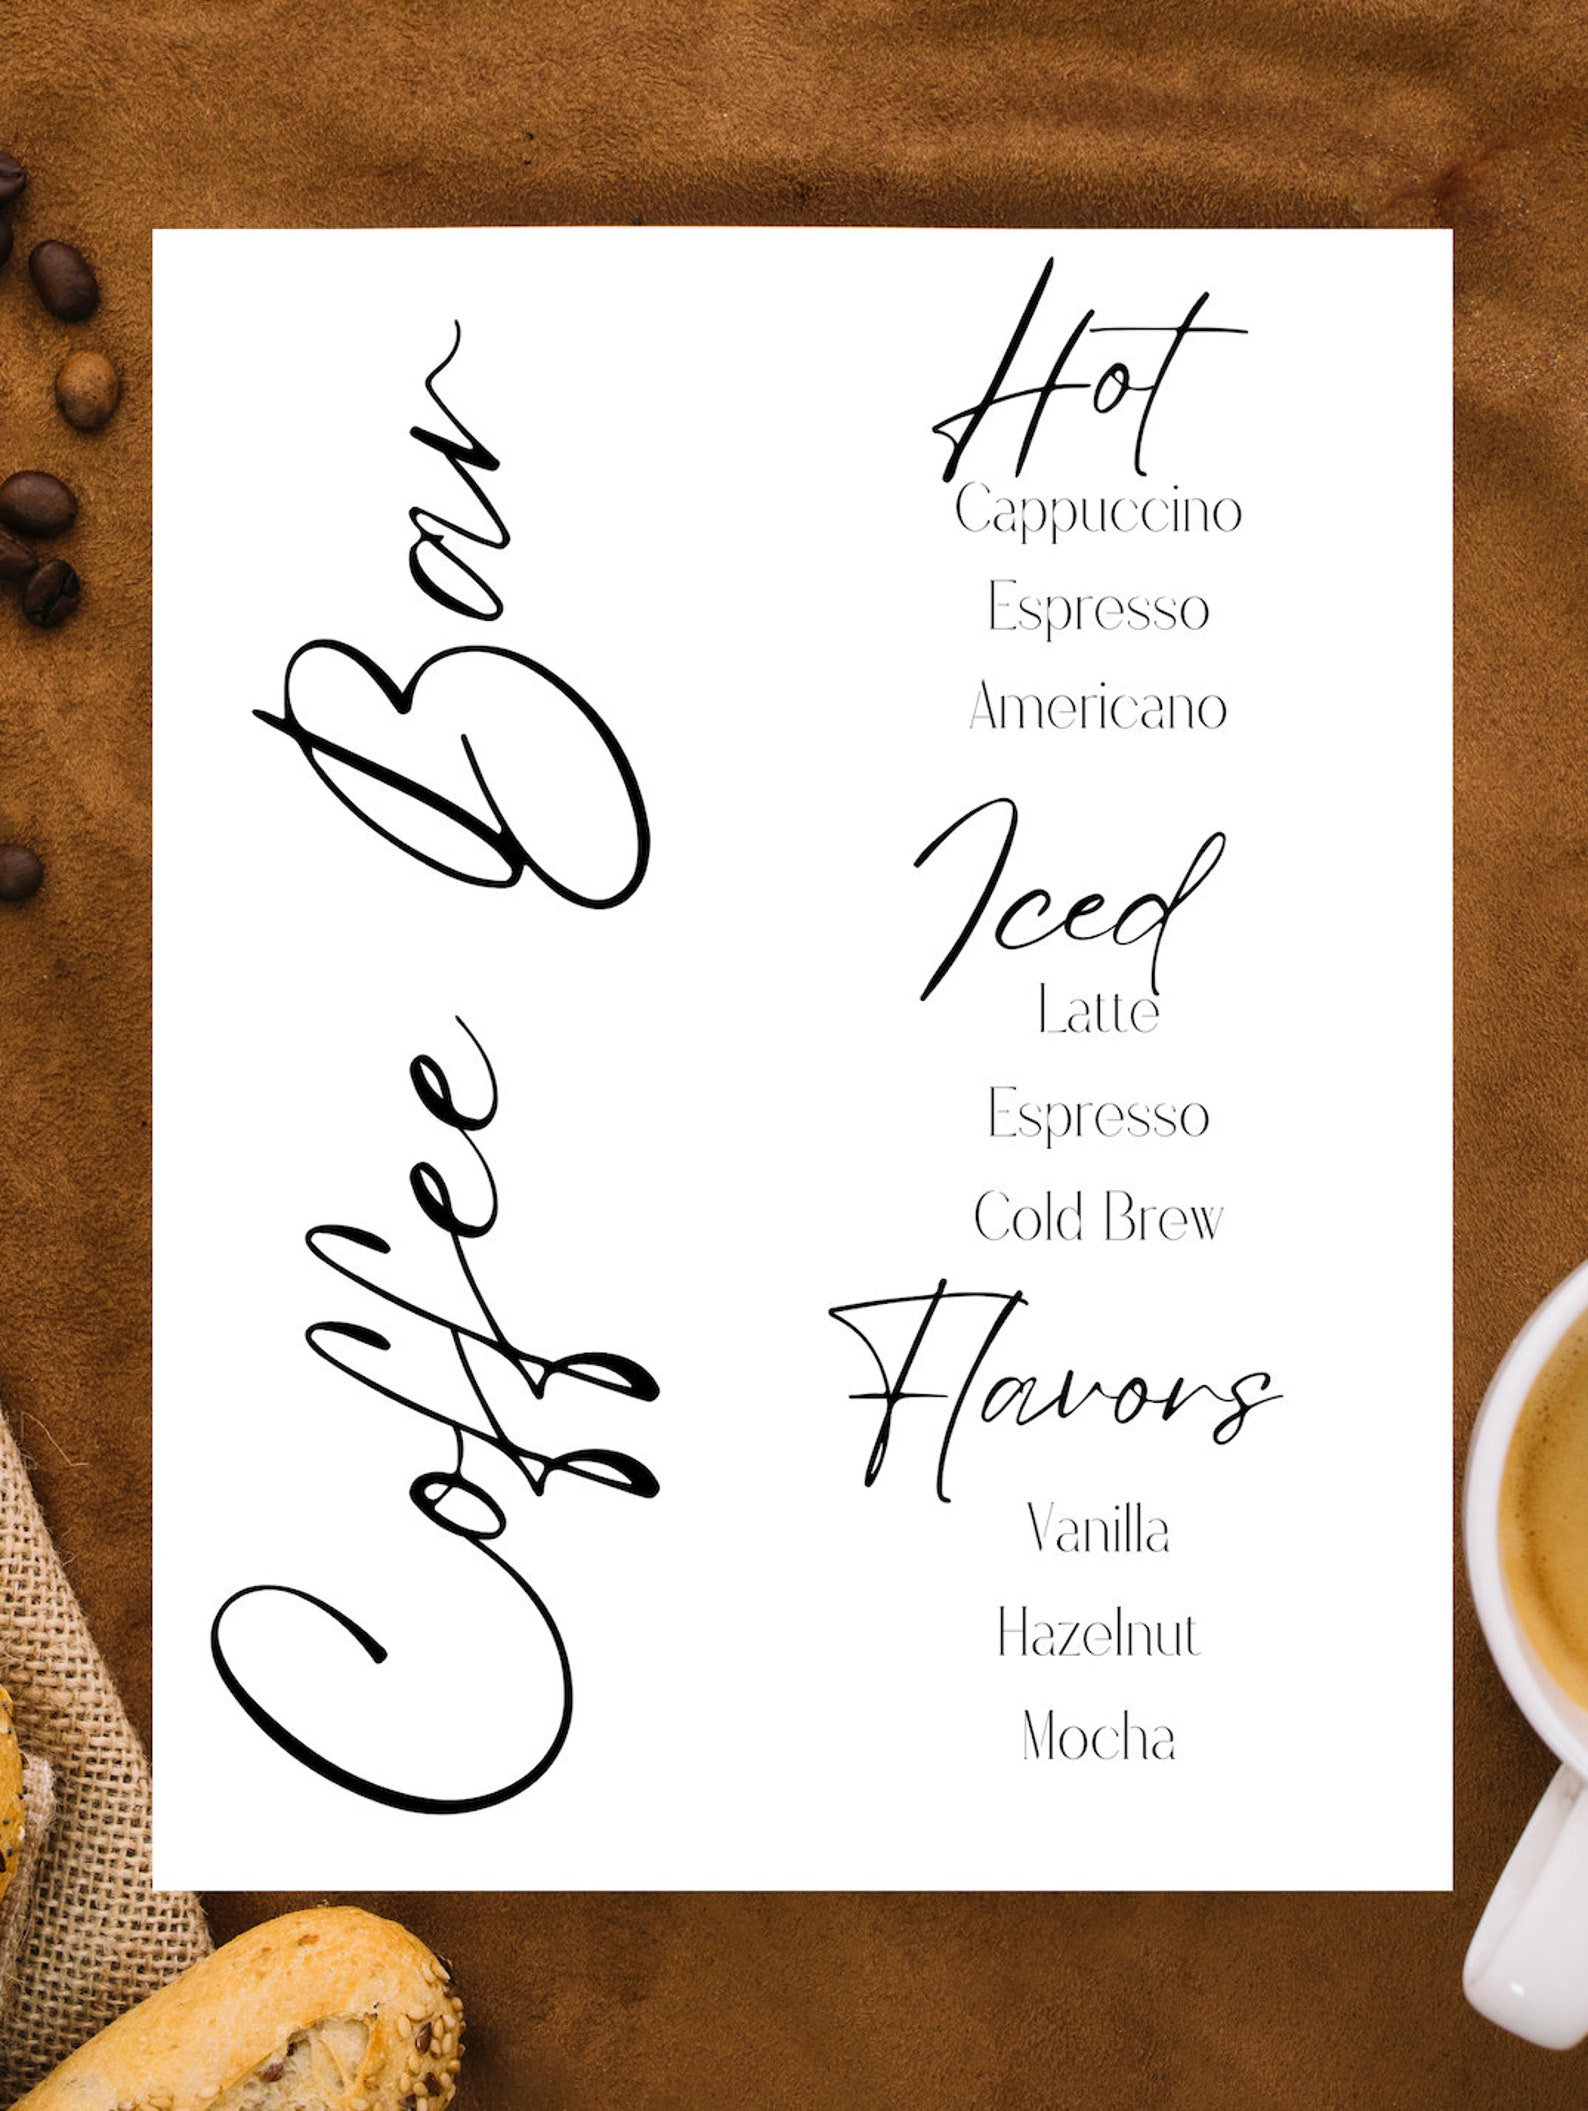 Coffee Bar
Hot
Cappuccino
Espresso
Americano
Iced
Latte
Espresso
Cold Brew
Flavors
Vanilla
Hazelnut
Mocha